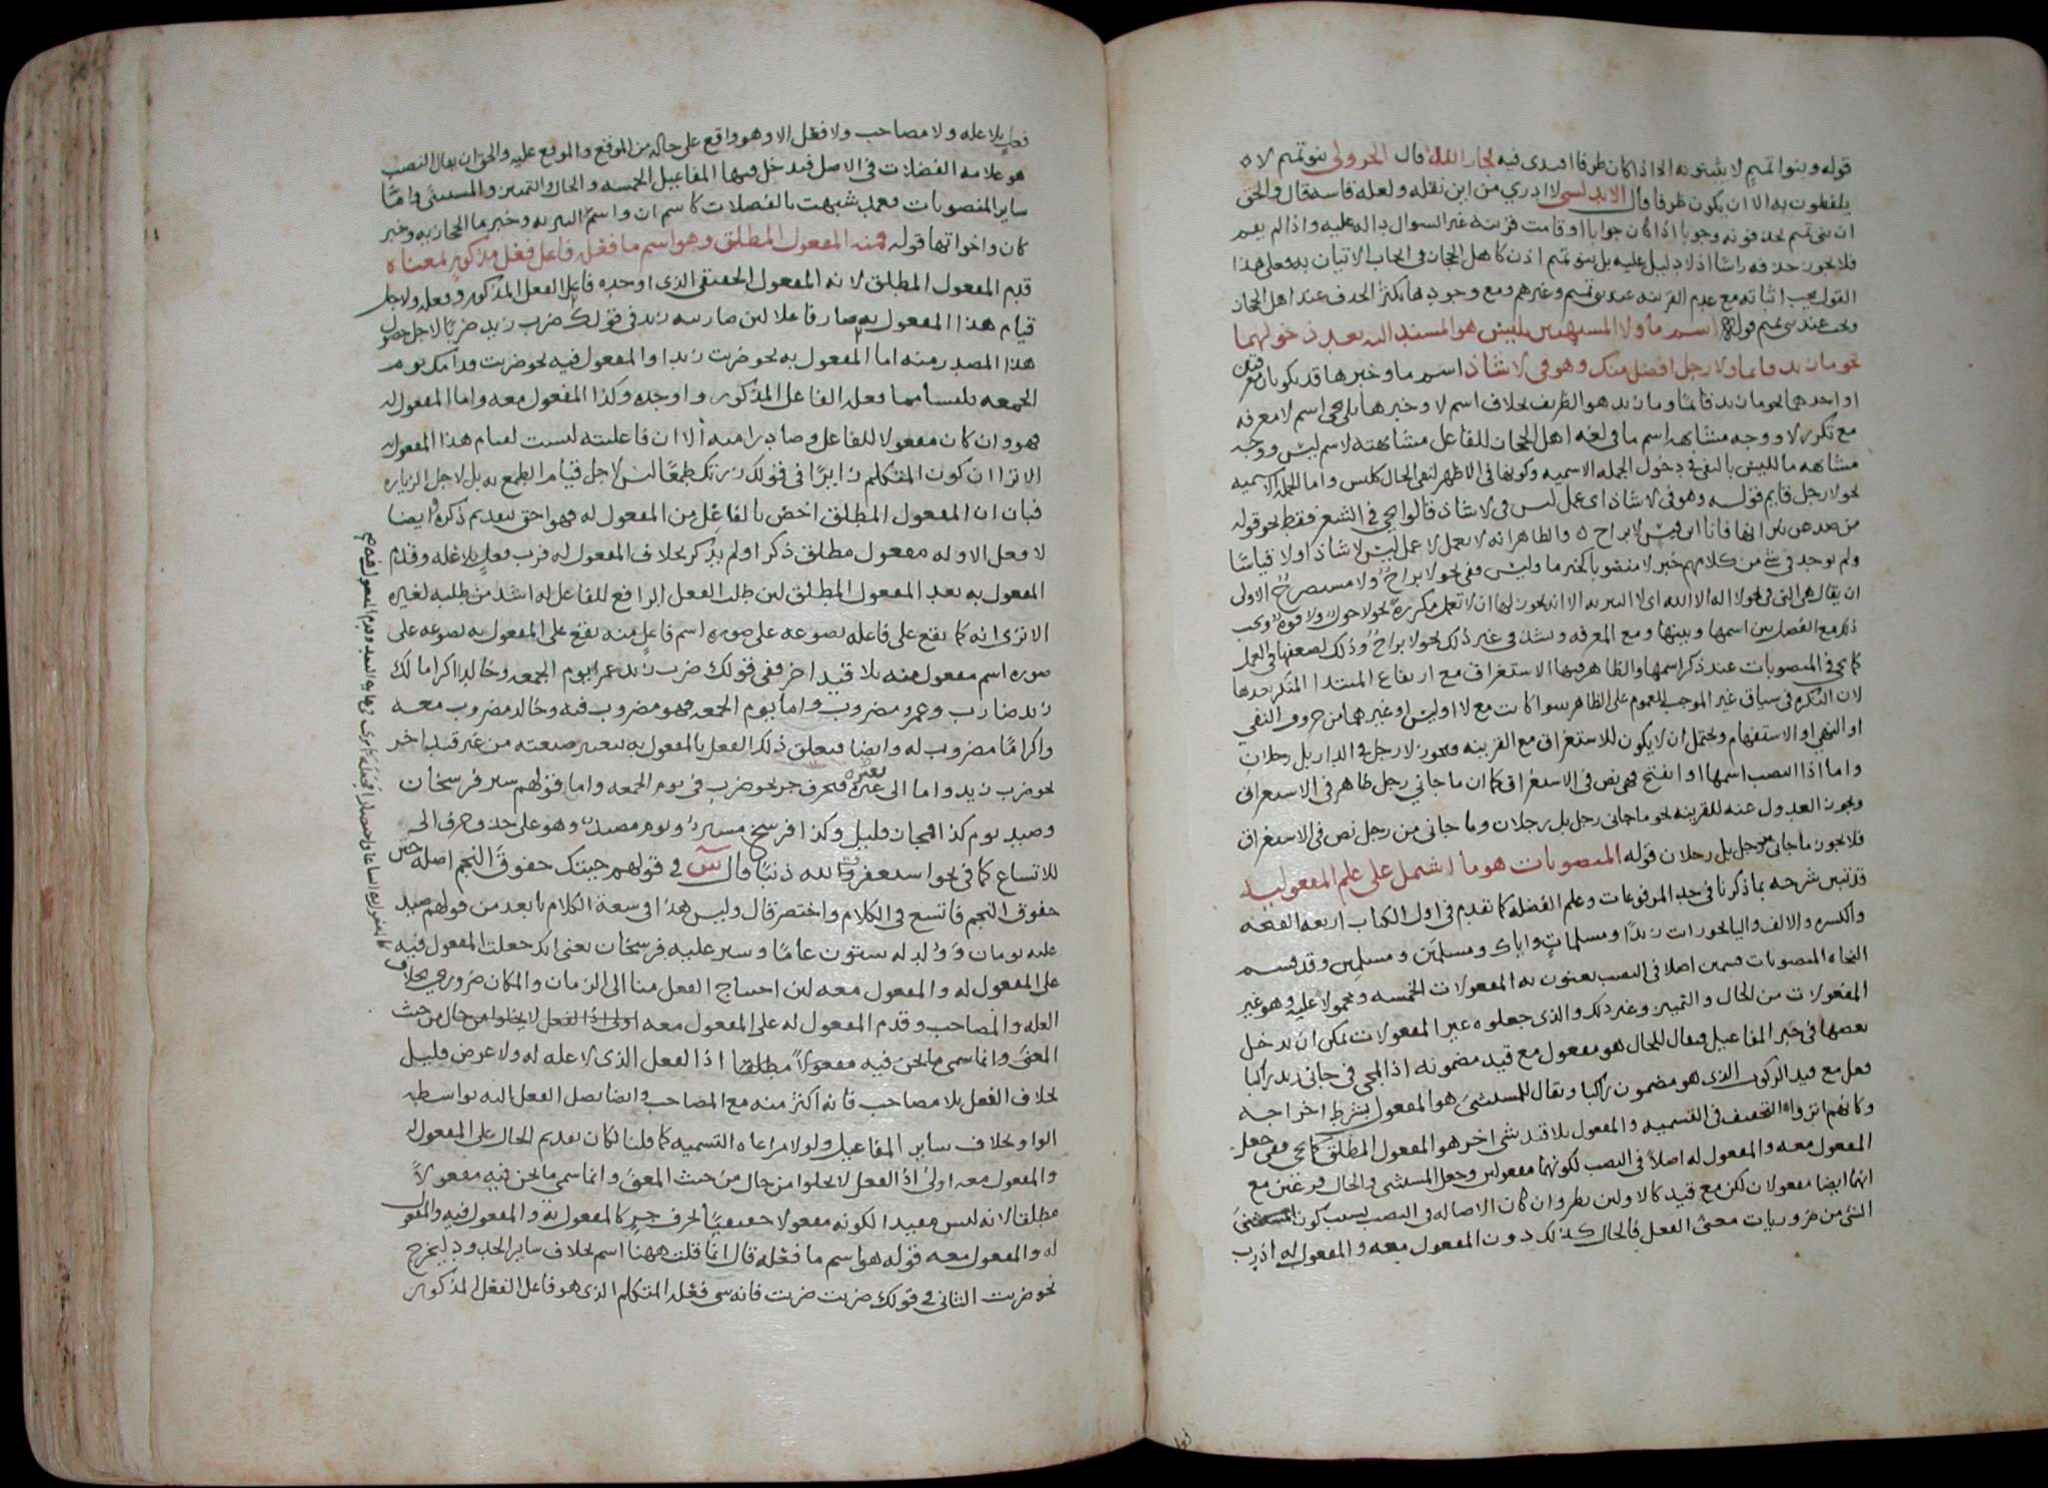 قوله وبنوا تميم لا يثبتونه الا اذا كان ظرفا اقتدى فيه بجار الله قال الجزولي بنو تميم لا
يلفظون به الا ان يكون ظرفا قال الاندلسي لا ادري من اين نقله ولعله قاسه قال والحق
ان بني تميم يحذفونه وجوبا اذا كان جوابا او قامت قرينة غير السوال دالة عليه واذا لم يقم
فلا يجوز حذفه راسا اذ لا دليل عليه بل بنو تميم اذن كاهل الحجاز في ايجاب الاتيان به فعلى هذا
القول يجب اثباته مع عدم القرينه عند بني تميم وغيرهم ومع وجودها يكثر الحذف عند اهل الحجاز
ويجب عند بني تميم قوله اسم ما ولا المشبهتين بليس هو المسند اليه بعد دخولهما
نحو ما زيد قايما ولا رجل افضل منك وهو في لا شاذ اسم ما وخبرها قد يكونان معرفتين
او احدهما نحو ما زيد قائما وما زيد هو الظريف بخلاف اسم لا وخبرها بلى يجي اسم لا معرفه
مع تكرر لا ووجه مشابهة اسم ما في لغه اهل الحجاز للفاعل مشابهته لاسم ليس ووجه
مشابهه ما لليس بالنفي في دخول الجمله الاسميه وكونها في الاظهر لنفي الحال كليس واما للجمله الاسميه
نحو لا رجل قايم قوله وهو في لا شاذ اى عمل ليس في لا شاذ قالوا يجي في الشعر فقط نحو قوله
من صد عن نيرانها فانا ابن قيس لا براح ه والظاهر انه لا يعمل لا عمل ليس لا شاذا ولا قياسا
ولم يوجد في شي من كلامهم خبر لا منصوبا كخبر ما وليس وفي نحو لا براح ولا مستصرخ الاولى
ان يقال هي التي في نحو لا اله الا الله اى لا التبريه الا انه يجوز لها ان لا تعمل مكررة نحو لا حول ولا قوة ويجب
ذلك مع الفصل بين اسمها وبينها ومع المعرفه وشذ في غير ذلك نحو لا براح وذلك لضعفها في العمل
كما يجي في المنصوبات عند ذكر اسمها والظاهر فيها الاستغراق مع ارتفاع المبتدا المنكر بعدها
لان النكره في سياق غير الموجب للعموم على الظاهر سوا كانت مع لا او ليس او غيرهما من حروف النفي
او النهي او الاستفهام ويحتمل ان لا يكون للاستغراق مع القرينه فيجوز لا رجل في الدار بل رجلان
واما اذا انتصب اسمها او انفتح فهي نص في الاستغراق كما ان ما جاني رجل ظاهر في الاستغراق
ويجوز العدول عنه للقرينه نحو ما جاني رجل بل رجلان وما جاني من رجل نص في الاستغراق
فلا يجوز ما جاني من رجل بل رجلان قوله المنصوبات هو ما اشتمل على علم المفعوليه
قد تبين شرحه بما ذكرنا في حد المرفوعات وعلم الفضله كما تقدم في اول الكتاب اربعه الفتحه
والكسره والالف واليا نحو رايت زيدا ومسلمات واباك ومسلمين ومسلمين وقد قسم
النحاه المنصوبات قسمين اصلا في النصب يعنون به المفعولات الخمسه ومحمولا عليه وهو غير
المفعولات من الحال والتمييز وغير ذلك والذى جعلوه غير المفعولات يمكن ان يدخل
بعضها في خبر المفاعيل فيقال للحال هو مفعول مع قيد مضمونه اذ المجي في جاني زيد راكبا
فعل مع قيد الركوب الذى هو مضمون راكبا ويقال للمستثنى هو المفعول بشرط اخراجه
وكانهم اثروا التخفيف في التسميه والمفعول بلا قيد شي اخر هو المفعول المطلق كما يجي وفي جعل
المفعول معه والمفعول له اصلا في النصب لكونهما مفعولين وجعل المستثنى والحال فرعين مع
انهما ايضا مفعولان لكن مع قيد كالاولين نظر وان كان الاصاله في النصب بسبب كون
الشي من ضروريات معنى الفعل فالحال كذلك دون المفعول معه والمفعول له اذ رب
فعل بلا عله ولا مصاحب ولا فعل الا وهو واقع على حاله من الموقع والموقع عليه والحق ان يقال النصب
هو علامه الفضلات في الاصل فيدخل فيها المفاعيل الخمسه والحال والتمييز والمستثنى واما
ساير المنصوبات فعمد شبهت بالفضلات كاسم ان واسم التبريه وخبر ما الحجازيه وخبر
كان واخواتها قوله فمنه المفعول المطلق وهو اسم ما فعله فاعل فعل مذكور بمعناه
قدم المفعول المطلق لانه المفعول الحقيقي الذى اوجده فاعل الفعل المذكور وفعله ولاجل
قيام هذا المفعول به صار فاعلا لان ضاربيه زيد في قولك ضرب زيد ضربا لاجل حصول
هذا المصدر منه اما المفعول به نحو ضربت زيدا والمفعول فيه نحو ضربت قدامك يوم
الجمعه فليسا مما فعله الفاعل المذكور واوجده وكذا المفعول معه واما المفعول له
فهو وان كان مفعولا للفاعل وصادرا منه الا ان فاعليته ليست لقيام هذا المفعول به
الا ترا ان كون المتكلم زايرا في قولك زرتك طمعا ليس لاجل قيام الطمع به بل لاجل الزياره
فبان ان المفعول المطلق اخص بالفاعل من المفعول له فهو احق بتقديم ذكره وايضا
لا فعل الا وله مفعول مطلق ذكر اولم يذكر بخلاف المفعول له فرب فعل بلا عله وقدم
المفعول به بعد المفعول المطلق لان طلب الفعل الرافع للفاعل له اشد من طلبه لغيره
الا ترى انه كما يقع على فاعله بصوغه على صوره اسم فاعل منه يقع على المفعول به بصوغه على
صوره اسم مفعول منه بلا قيد اخر ففي قولك ضرب زيد عمرا يوم الجمعه وخالدا اكراما لك
زيد ضارب وعمرو مضروب واما يوم الجمعه فهو مضروب فيه وخالد مضروب معه
واكراما مضروب له وايضا فيعلق ذلك الفعل بالمفعول به بتغيير صيغته من غير قيد اخر
نحو ضرب زيد واما الى غيره فبحرف جر نحو ضرب في يوم الجمعه واما قولهم سير فرسخان
وصيد يوم كذا فمجاز قليل وكذا فرسخ مسير ويوم مصيد وهو على حذف حرف الجر
للاتساع كما في نحو استغفرت الله ذنبا قال س في قولهم جيتك خفوق النجم اصله حين
خفوق النجم فاتسع في الكلام واختصر قال وليس هذا في سعة الكلام بابعد من قولهم صيد
عليه يومان وولد له ستون عاما وسير عليه فرسخان يعني انك جعلت المفعول فيه
على المفعول له والمفعول معه لان احتياج الفعل منا الى الزمان والمكان ضروري بخلاف
العله والمصاحب وقدم المفعول له على المفعول معه اولى اذ الفعل لا يخلوا من حال من حيث
المعنى وانما سمي ما نحن فيه مفعولا مطلقا اذ الفعل الذى لا عله له ولا غرض قليل
بخلاف الفعل بلا مصاحب فانه اكثر منه مع المصاحب وايضا يصل الفعل اليه بواسطه
الواو بخلاف ساير المفاعيل ولولا مراعاه القسميه كما قلنا لكان تقديم الحال على المفعول له
والمفعول معه اولى اذ الفعل لا يخلوا من حال من حيث المعنى وانما سمي ما نحن فيه مفعولا
مطلقا لانه ليس مقيدا لكونه مفعولا حقيقيا بحرف جر كالمفعول به والمفعول فيه والمفعول
له والمفعول معه قوله هو اسم ما فعله قال انما قلت ههنا اسم بخلاف ساير الحدود ليخرج
نحو ضربت الثاني في قولك ضربت ضربت فانه شي فعله المتكلم الذى هو فاعل الفعل المذكور